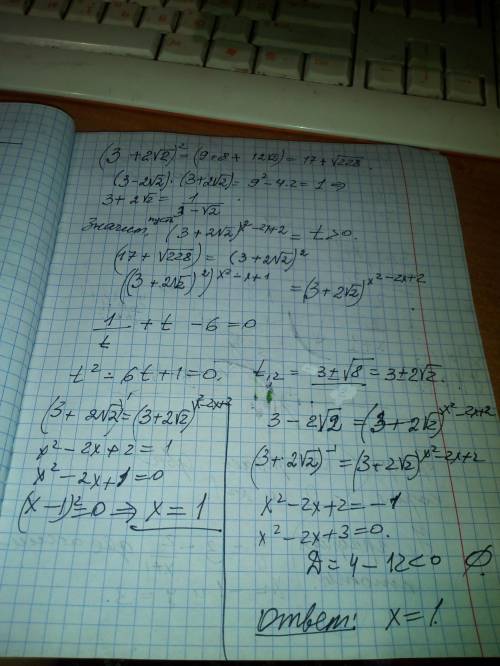 (3 + 2√2)² = (9+8+ 12√2) = 17 + √228.
(3-2√2) · (3+2√2) = 9² - 4·2 = 1 ⇒
3 + 2√2 = 1/(3 - √2)
Значит, пусть (3 + 2√2)^(x² - 2x + 2) = t > 0.
(17 + √228) = (3 + 2√2)²
((3 + 2√2)²)^(x² - x + 1) = (3 + 2√2)^(x² - 2x + 2)
1/t + t - 6 = 0
t² - 6t + 1 = 0.
(3 + 2√2)¹ = (3 + 2√2)^(x² - 2x + 2)
x² - 2x + 2 = 1
x² - 2x + 1 = 0
(x - 1)² = 0 ⇒ x = 1
t₁,₂ = 3 ± √8 = 3 ± 2√2.
3 - 2√2 = (3 + 2√2)^(x² - 2x + 2)
(3 + 2√2)⁻¹ = (3 + 2√2)^(x² - 2x + 2)
x² - 2x + 2 = -1
x² - 2x + 3 = 0.
D = 4 - 12 < 0 ∅.
Ответ: x = 1.